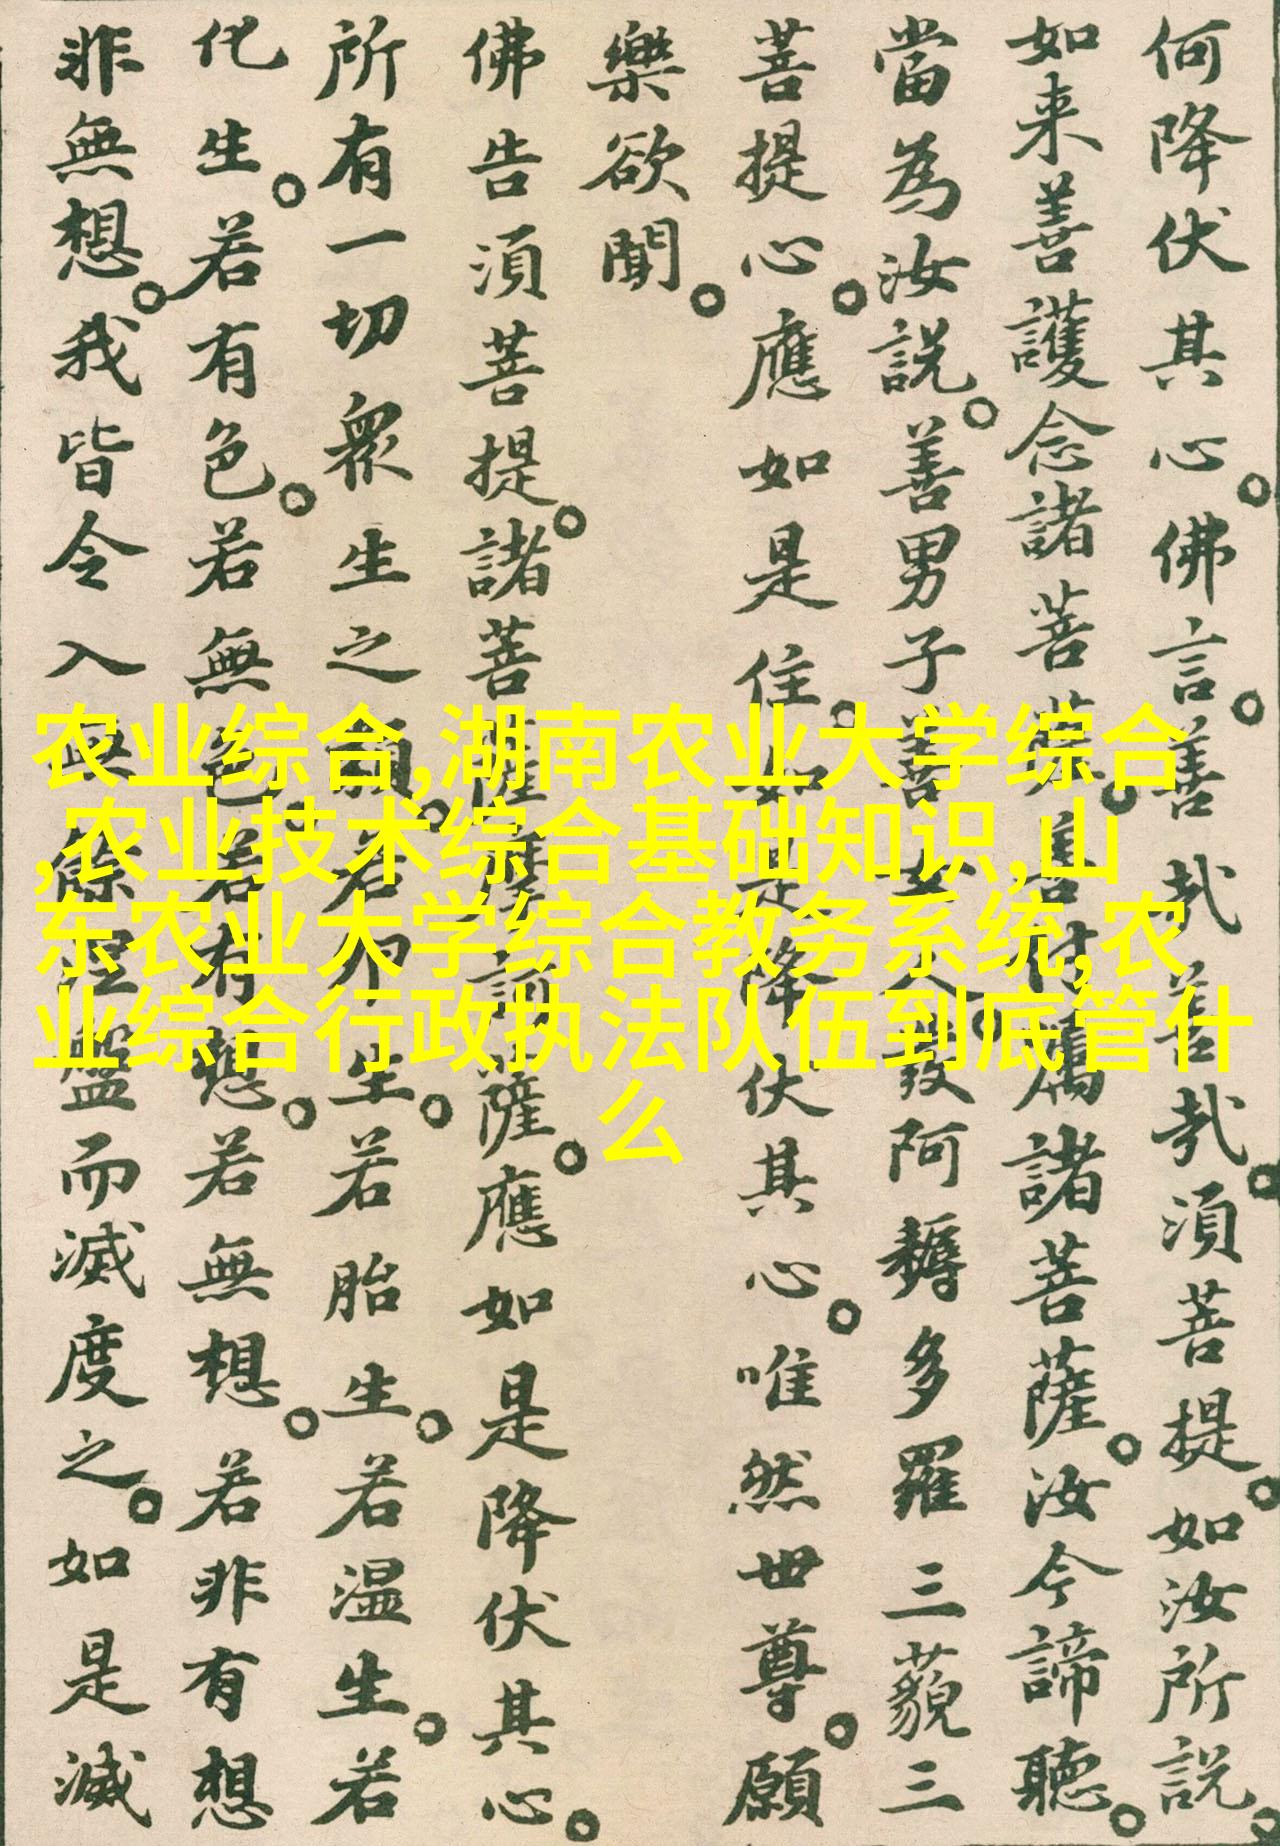 何降伏其心。佛言。善哉善哉。須菩提。如汝所說。
如来善護念諸菩薩。善付属諸菩薩。汝今諦聽。
當為汝說。善男子善女人。發阿耨多羅三藐三
菩提心。應如是住。如是降伏其心。唯然世尊。願
樂欲聞。
佛告須菩提。諸菩薩摩訶薩。應如是降伏其心。
所有一切衆生之類。若卵生。若胎生。若温生。若
化生。若有色。若無色。若有想。若無想。若非有想
非無想。我皆令入無餘涅盤而滅度之。如是滅
农业综合,湖南农业大学综合
,农业技术综合基础知识,山
东农业大学综合教务系统,农
业综合行政执法队伍到底管什
么